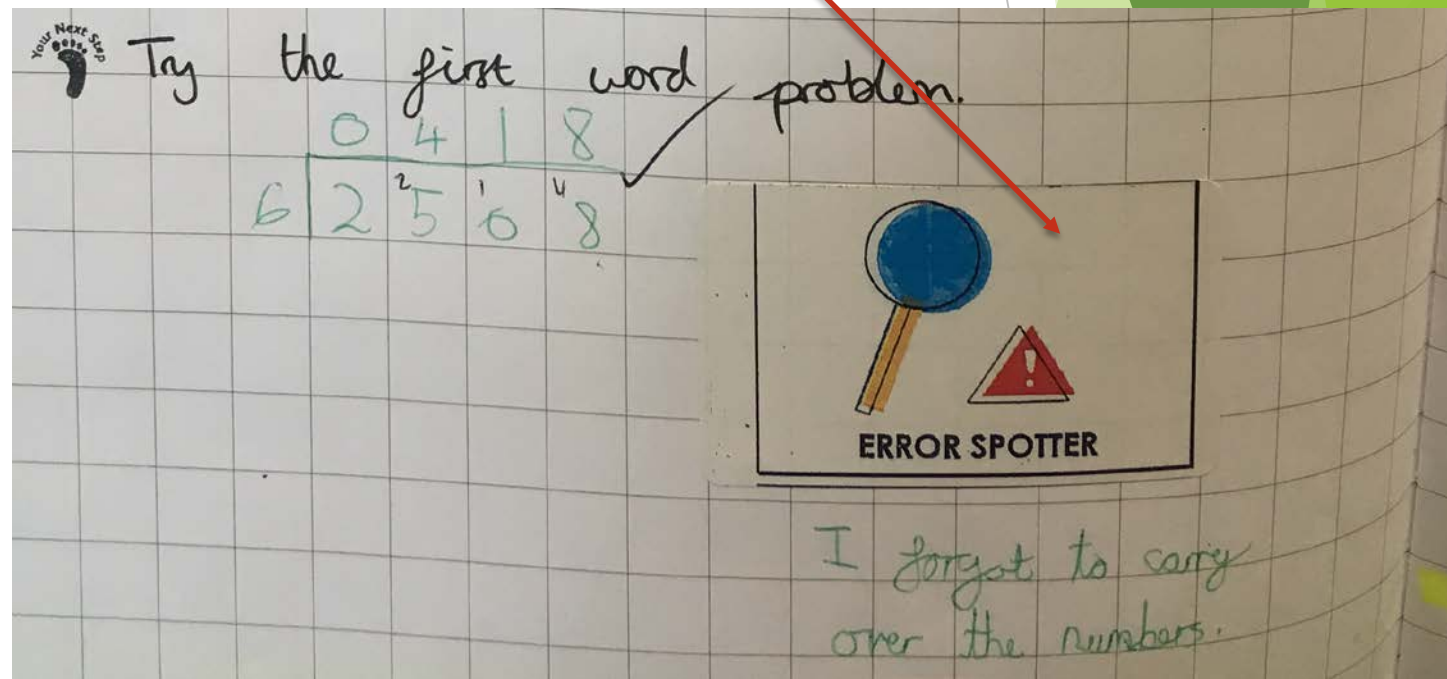 Your Next Step
Try the first word problem.
0 4 1 8
6 2 ²5 ¹0 ⁴8
!
ERROR SPOTTER
I forgot to carry
over the numbers.